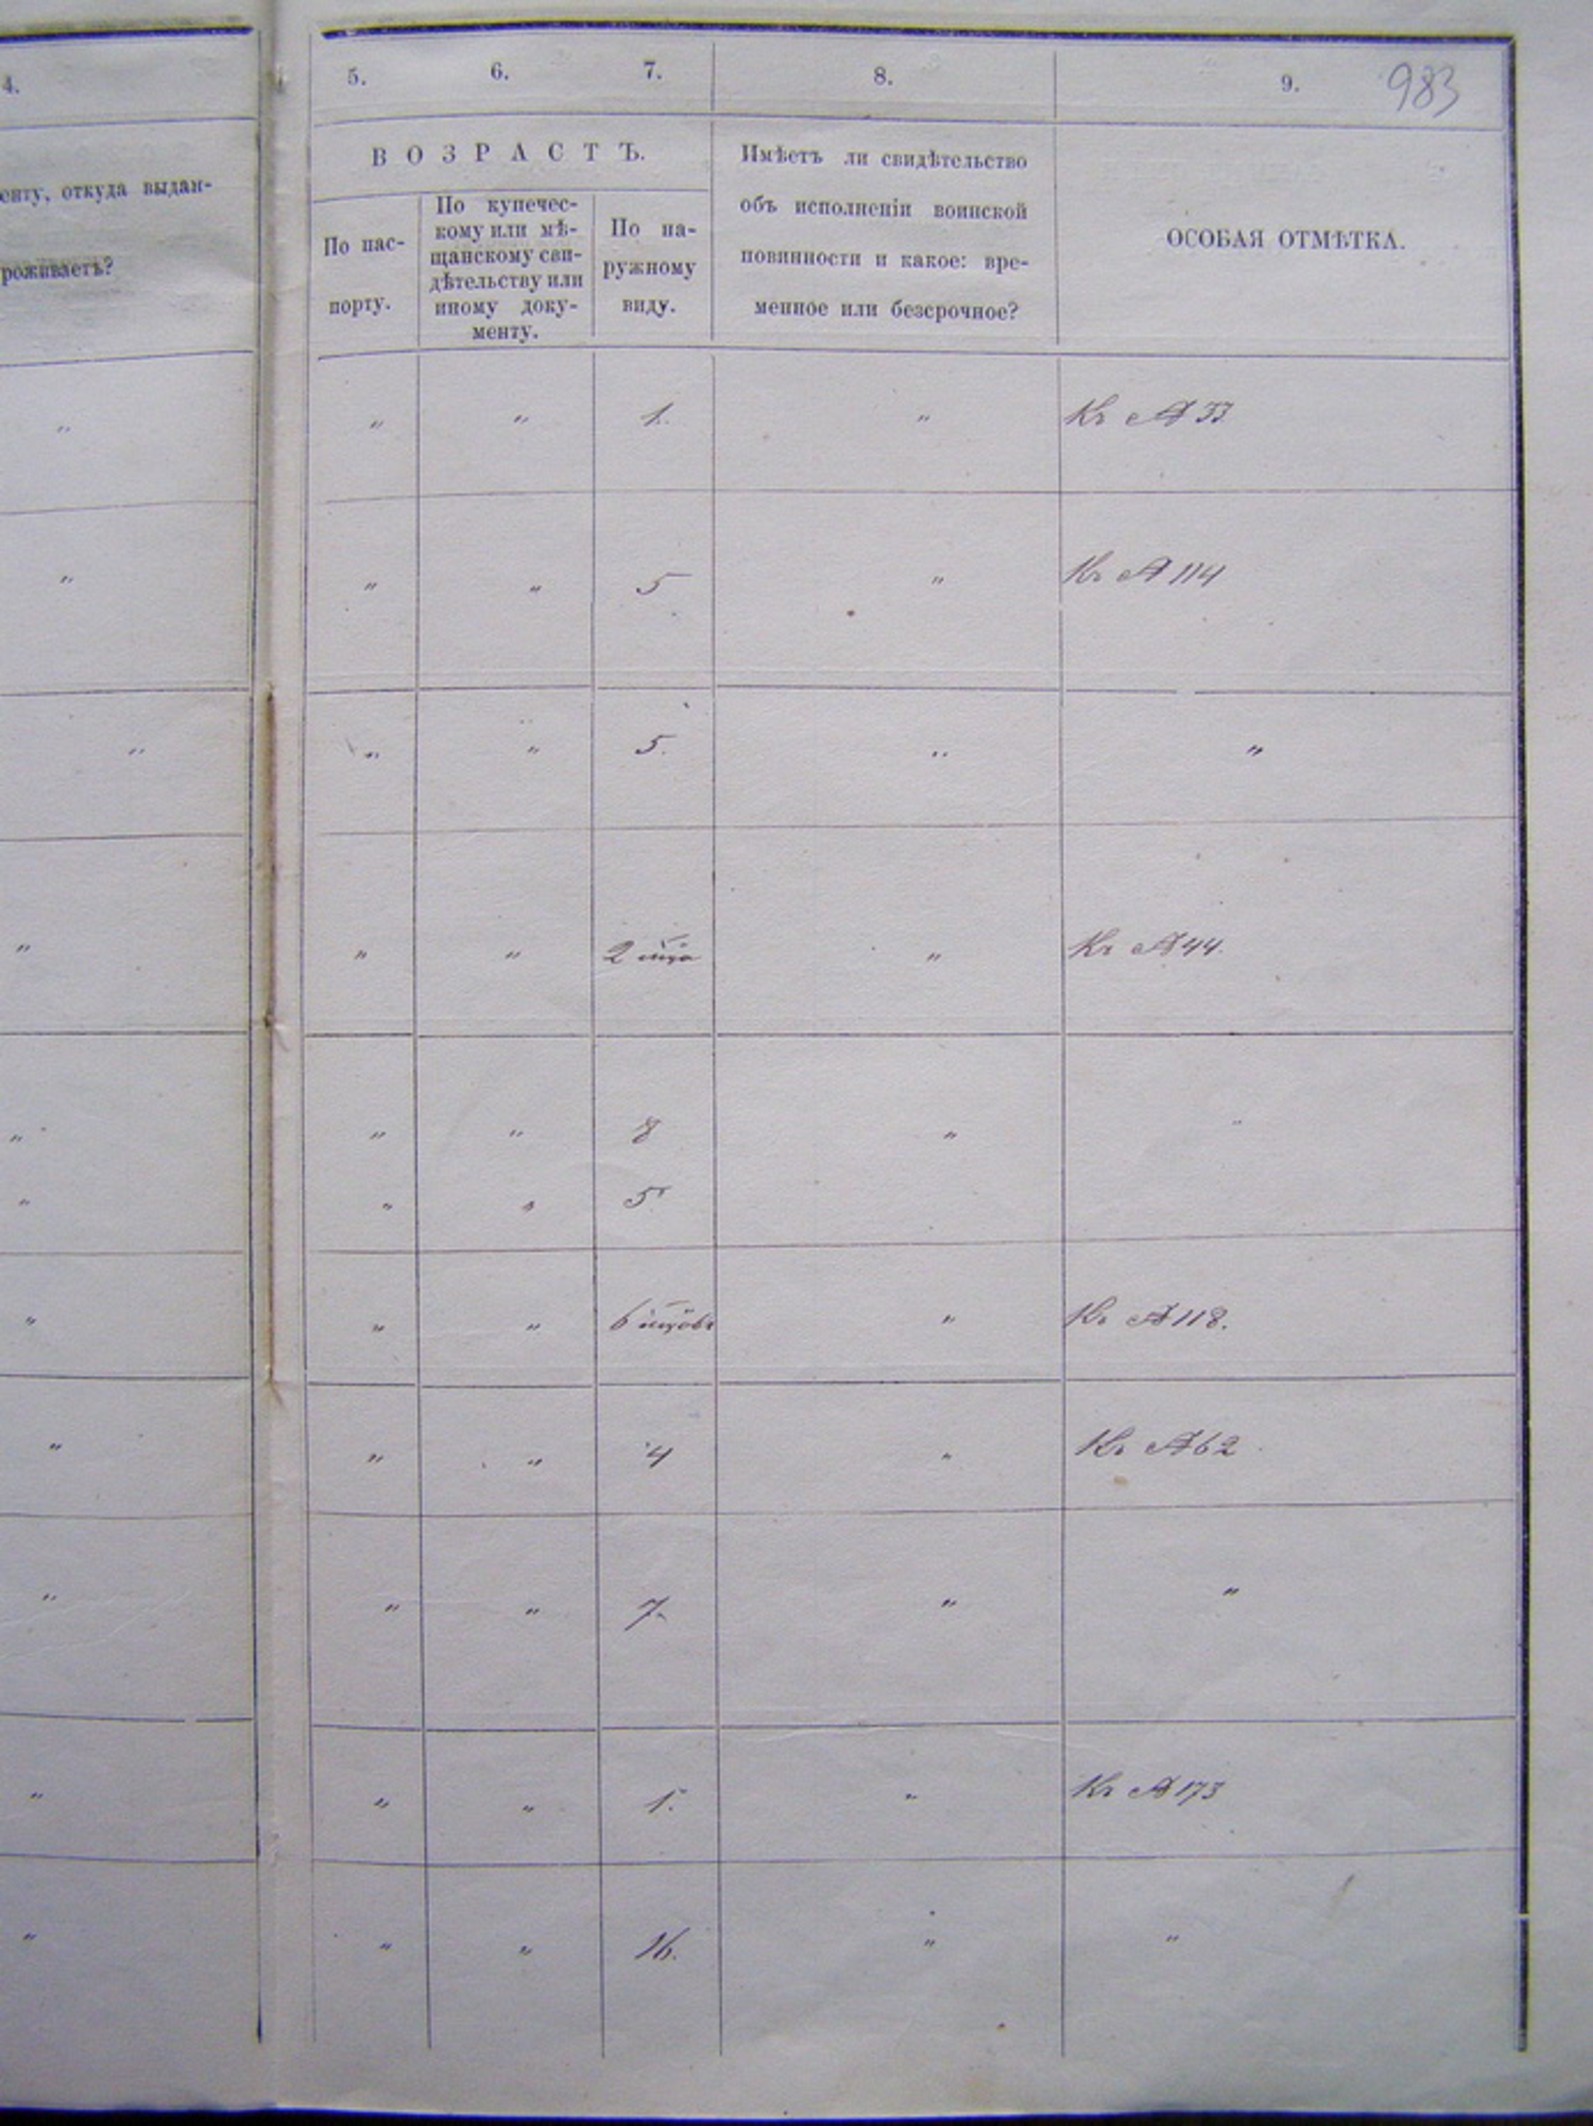 4.
енту, откуда выдан-
роживаетъ?
„
„
„
„
„
„
„
„
„
„
„
983
5. 6. 7. 8. 9.
ВОЗРАСТЪ.
По пас-
порту.
По купечес-
кому или мѣ-
щанскому сви-
дѣтельству или
иному доку-
менту.
По на-
ружному
виду.
Имѣетъ ли свидѣтельство
объ исполненіи воинской
повинности и какое: вре-
менное или безсрочное?
ОСОБАЯ ОТМѢТКА.
„ „ 1. „ Къ № 33
„ „ 5 „ Къ № 114
„ „ 5. „ „
„ „ 2 мца „ Къ № 44.
„ „ 8 „ „
„ „ 5
„ „ 6 мцовъ „ Къ № 118.
„ „ 4 „ Къ № 62
„ „ 7. „ „
„ „ 1. „ Къ № 173
„ „ 16. „ „